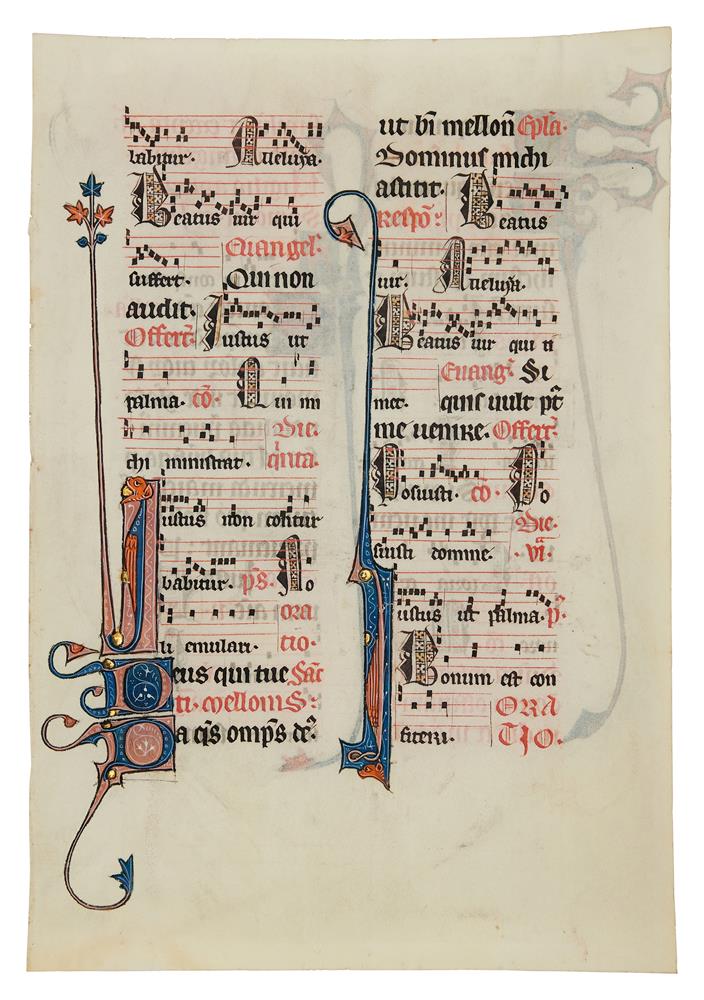 babitur. Alleluya.
Beatus uir qui
Euangel'
suffert. Qui non
audit.
Offert' Iustus ut
palma. cō. Qui mi
Die
chi ministrat. q̄nta.
Iustus non cōitur
babitur. p̄s. No
ora
li emulari. tio.
Deus qui tue Sāc
ti. mellonis:
Da q̄s omp̄s de'
ut bī mellon̄ Ep̄la.
Dominus michi
astitit.
Respō: Beatus
uir. Alleluya.
Beatus uir qui ti
Euang' Si
met. quis uult p̄t
me uenire. Offert'
Posuisti. cō. Po
Die
suisti domine. .vi.
Iustus ut palma. p̄.
Bonum est con
ORA
fiteri. TIO.